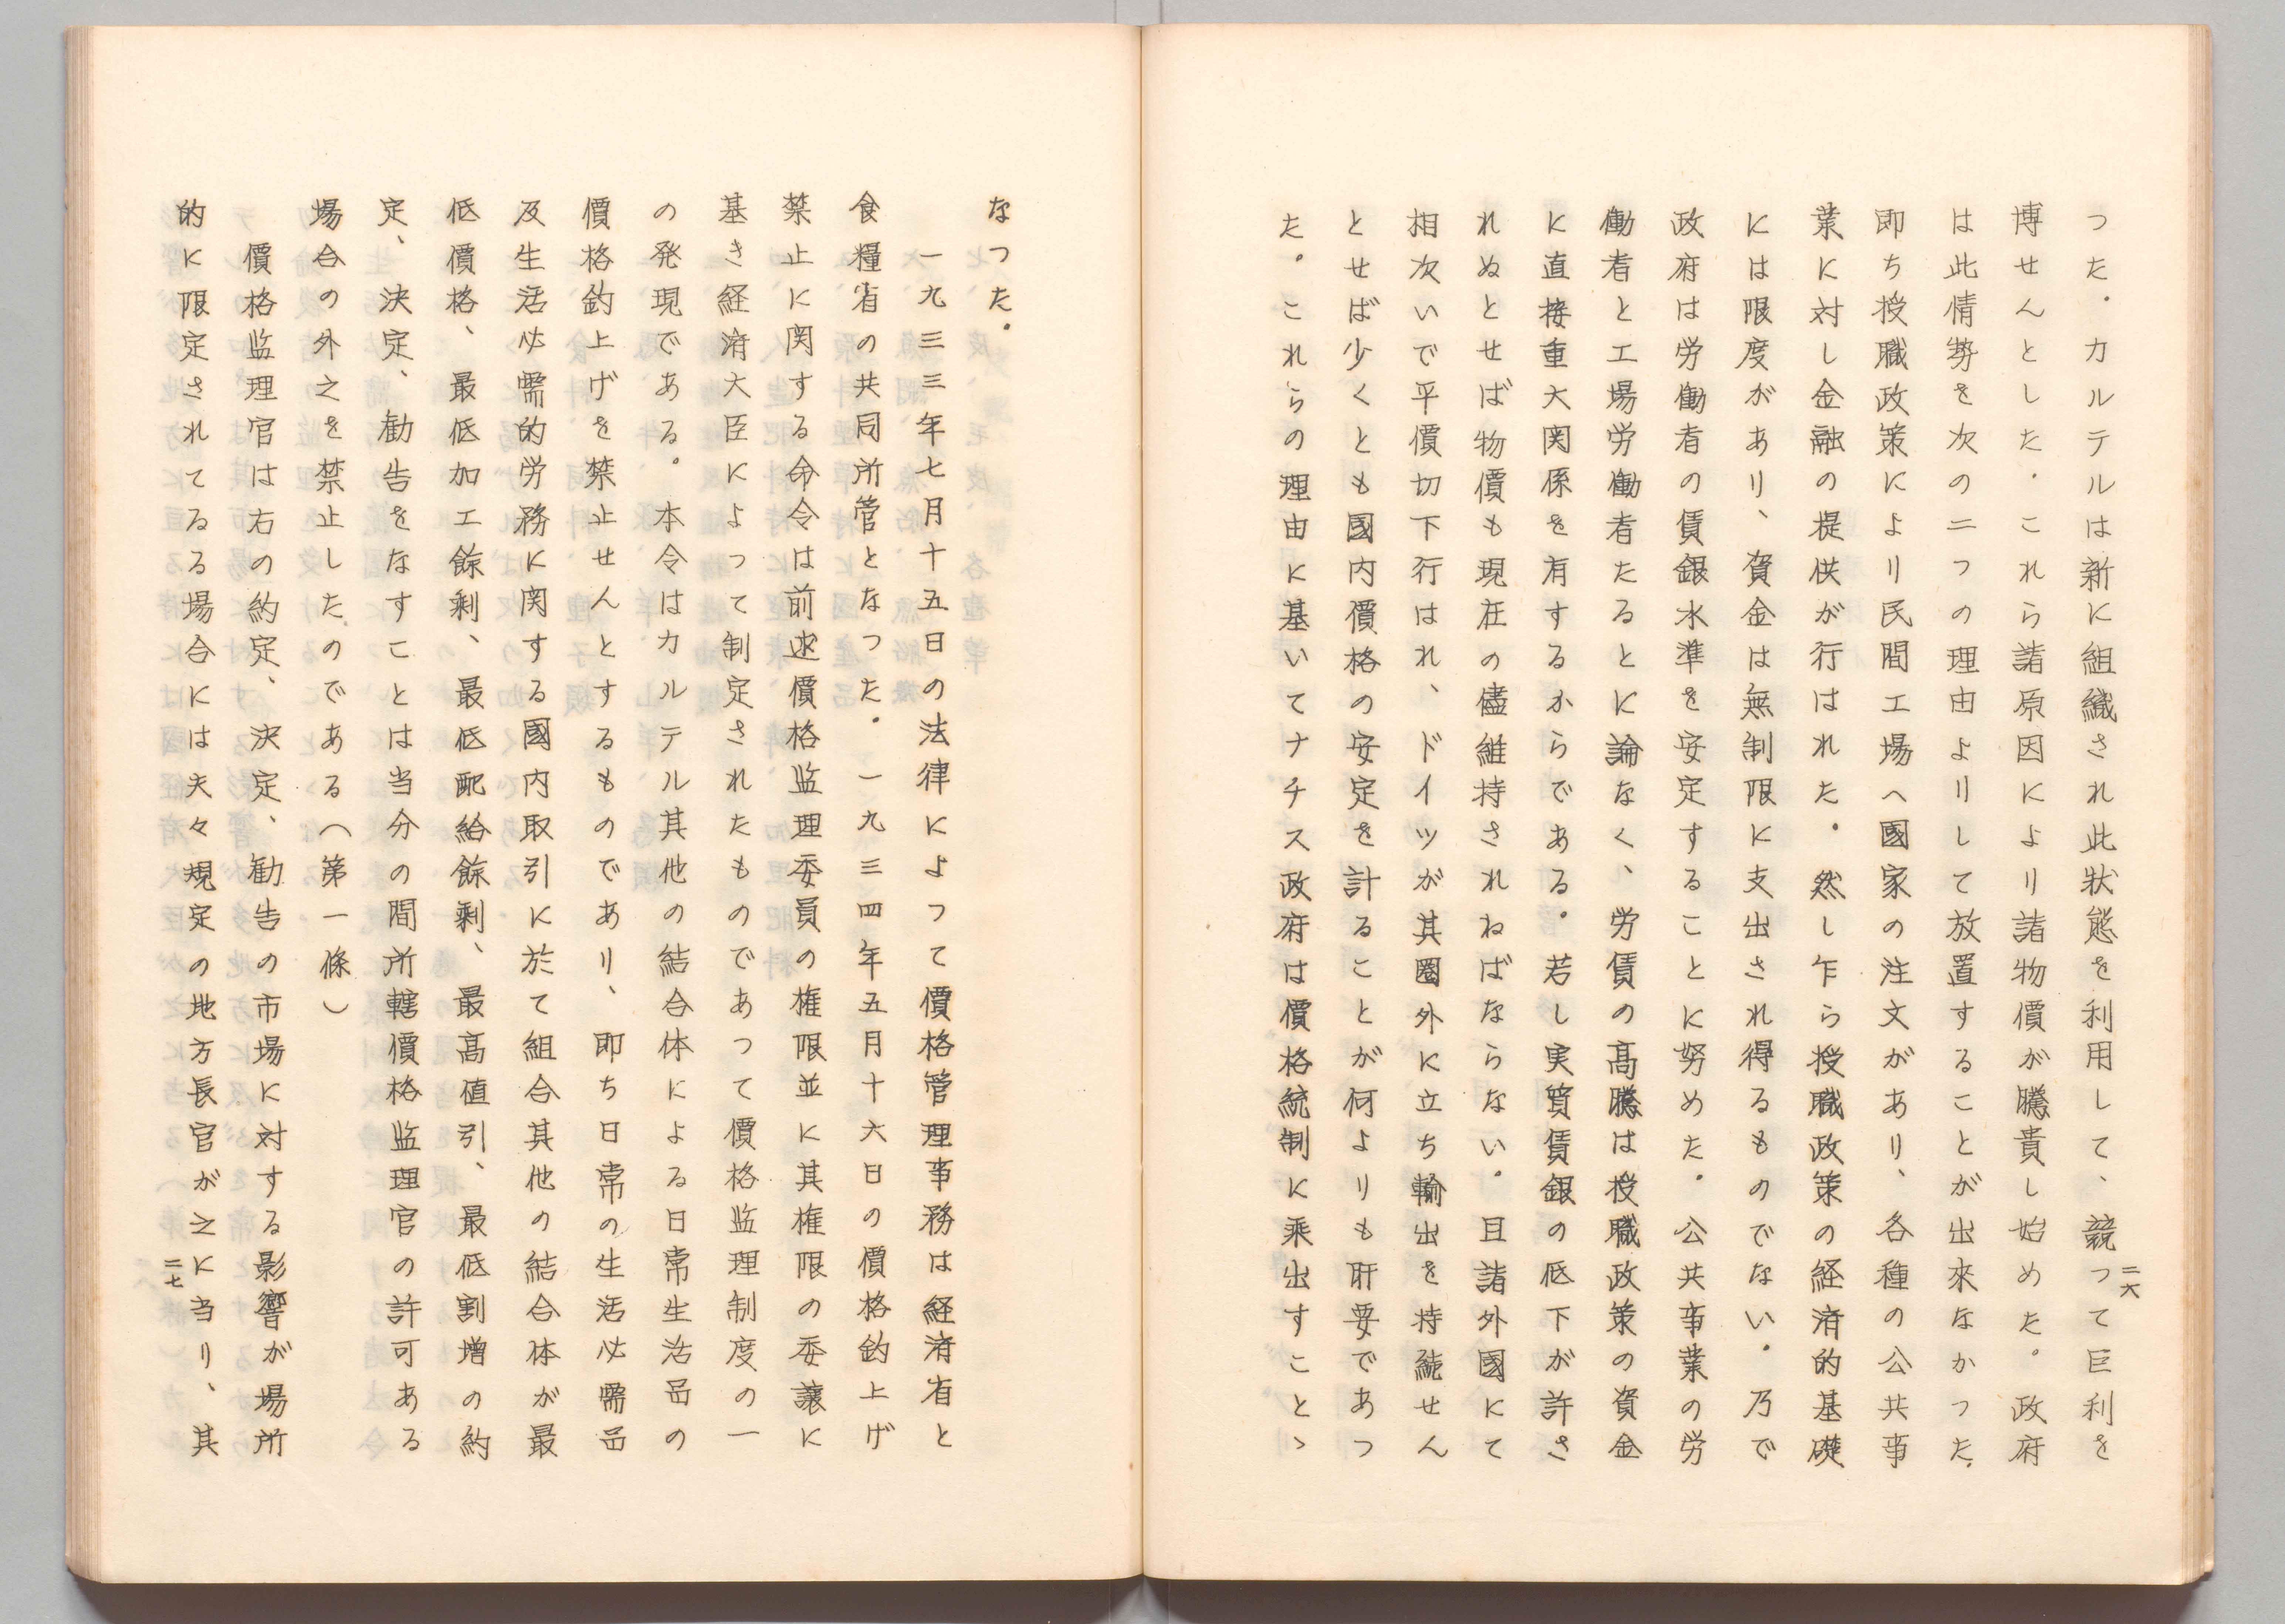 った。カルテルは新に組織され此状態を利用して、競つて巨利を
博せんとした。これら諸原因により諸物價が騰貴し始めた。政府
は此情勢を次の二つの理由よりして放置することが出來なかった。
即ち授職政策により民間工場へ國家の注文があり、各種の公共事
業に対し金融の提供が行はれた。然し乍ら授職政策の経済的基礎
には限度があり、資金は無制限に支出され得るものでない。乃で
政府は労働者の賃銀水準を安定することに努めた。公共事業の労
働者と工場労働者たるとに論なく、労賃の高騰は授職政策の資金
に直接重大関係を有するからである。若し実質賃銀の低下が許さ
れぬとせば物價も現在の儘維持されねばならない。且諸外國にて
相次いで平價切下行はれ、ドイツが其圏外に立ち輸出を持続せん
とせば少くとも國内價格の安定を計ることが何よりも肝要であつ
た。これらの理由に基いてナチス政府は價格統制に乘出すことゝ
二六
なつた。
一九三三年七月十五日の法律によつて價格管理事務は経済省と
食糧省の共同所管となつた。一九三四年五月十六日の價格釣上げ
禁止に関する命令は前述價格監理委員の権限並に其権限の委譲に
基き経済大臣によって制定されたものであつて價格監理制度の一
の発現である。本令はカルテル其他の結合体による日常生活品の
價格釣上げを禁止せんとするものであり、即ち日常の生活必需品
及生活必需的労務に関する國内取引に於て組合其他の結合体が最
低價格、最低加工餘剰、最低配給餘剰、最高値引、最低割増の約
定、決定、勧告をなすことは当分の間所轄價格監理官の許可ある
場合の外之を禁止したのである（第一條）
價格監理官は右の約定、決定、勧告の市場に対する影響が場所
的に限定されてゐる場合には夫々規定の地方長官が之に当り、其
二七